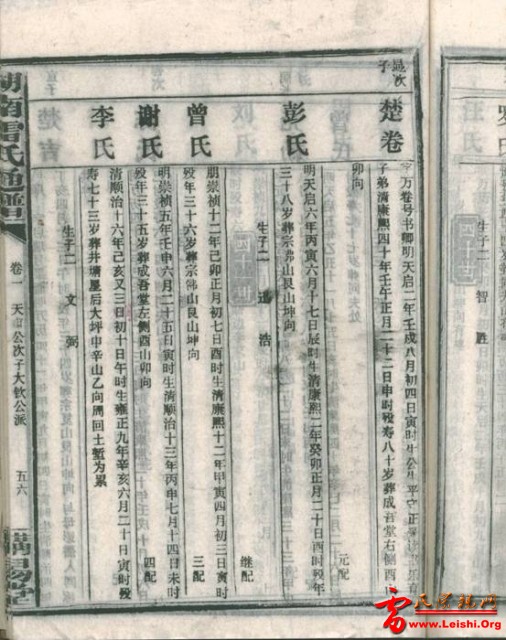 罗氏
生子二 智 胜
是次子
楚卷
字万卷号书卿明天启二年壬戌八月初四日寅时生公生平守正
子弟清康熙四十年壬午正月二十二日申时殁寿八十岁葬成吾堂右侧酉山
卯向
元配
彭氏
明天启六年丙寅六月十七日辰时生清康熙二年癸卯正月二十日酉时殁年
三十八岁葬宗佛山艮山坤向
生子二 迅 浩
继配
曾氏
明崇祯十二年己卯正月初七日酉时生清康熙十二年甲寅四月初三日寅时
殁年三十六岁葬宗佛山艮山坤向
三配
谢氏
明崇祯五年壬申六月二十五日寅时生清顺治十三年丙申七月十四日未时
殁年三十五岁葬成吾堂左侧酉山卯向
四配
李氏
清顺治十六年己亥又三日初十日午时生雍正九年辛亥六月二十日寅时殁
寿七十三岁葬井塘屋后大坪申辛山乙向周回土暂为累
生子二 文 弼
湖南雷氏通谱
卷一
天申公次子大钦公派
五六
www.Leishi.Org